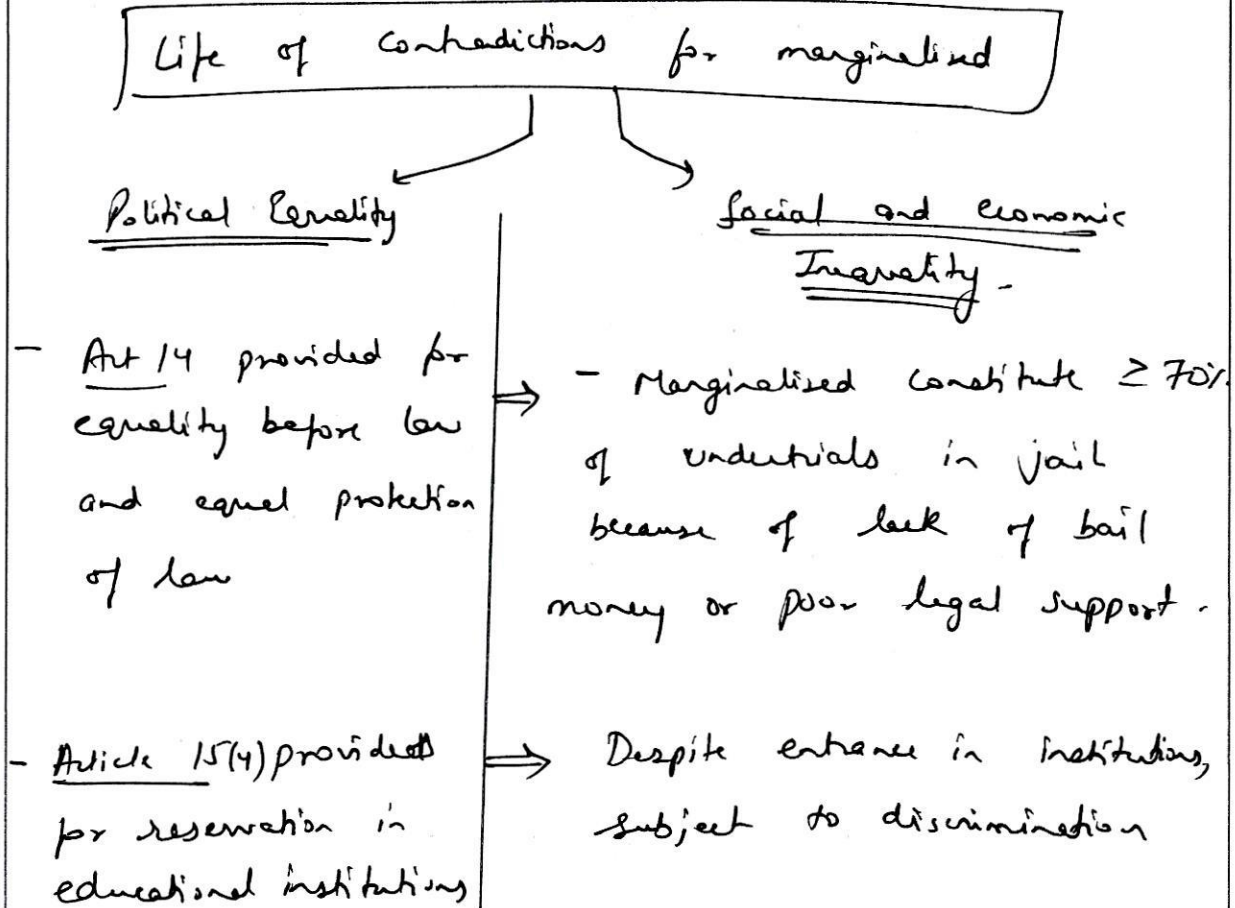 Life of contradictions for marginalised
Political Equality
- Art 14 provided for
equality before law
and equal protection
of law
- Article 15(4) provides
for reservation in
educational institutions
Social and economic
Inequality -
⇒ - Marginalised constitute ≥ 70%
of undertrials in jail
because of lack of bail
money or poor legal support.
⇒ Despite entrance in institutions,
subject to discrimination